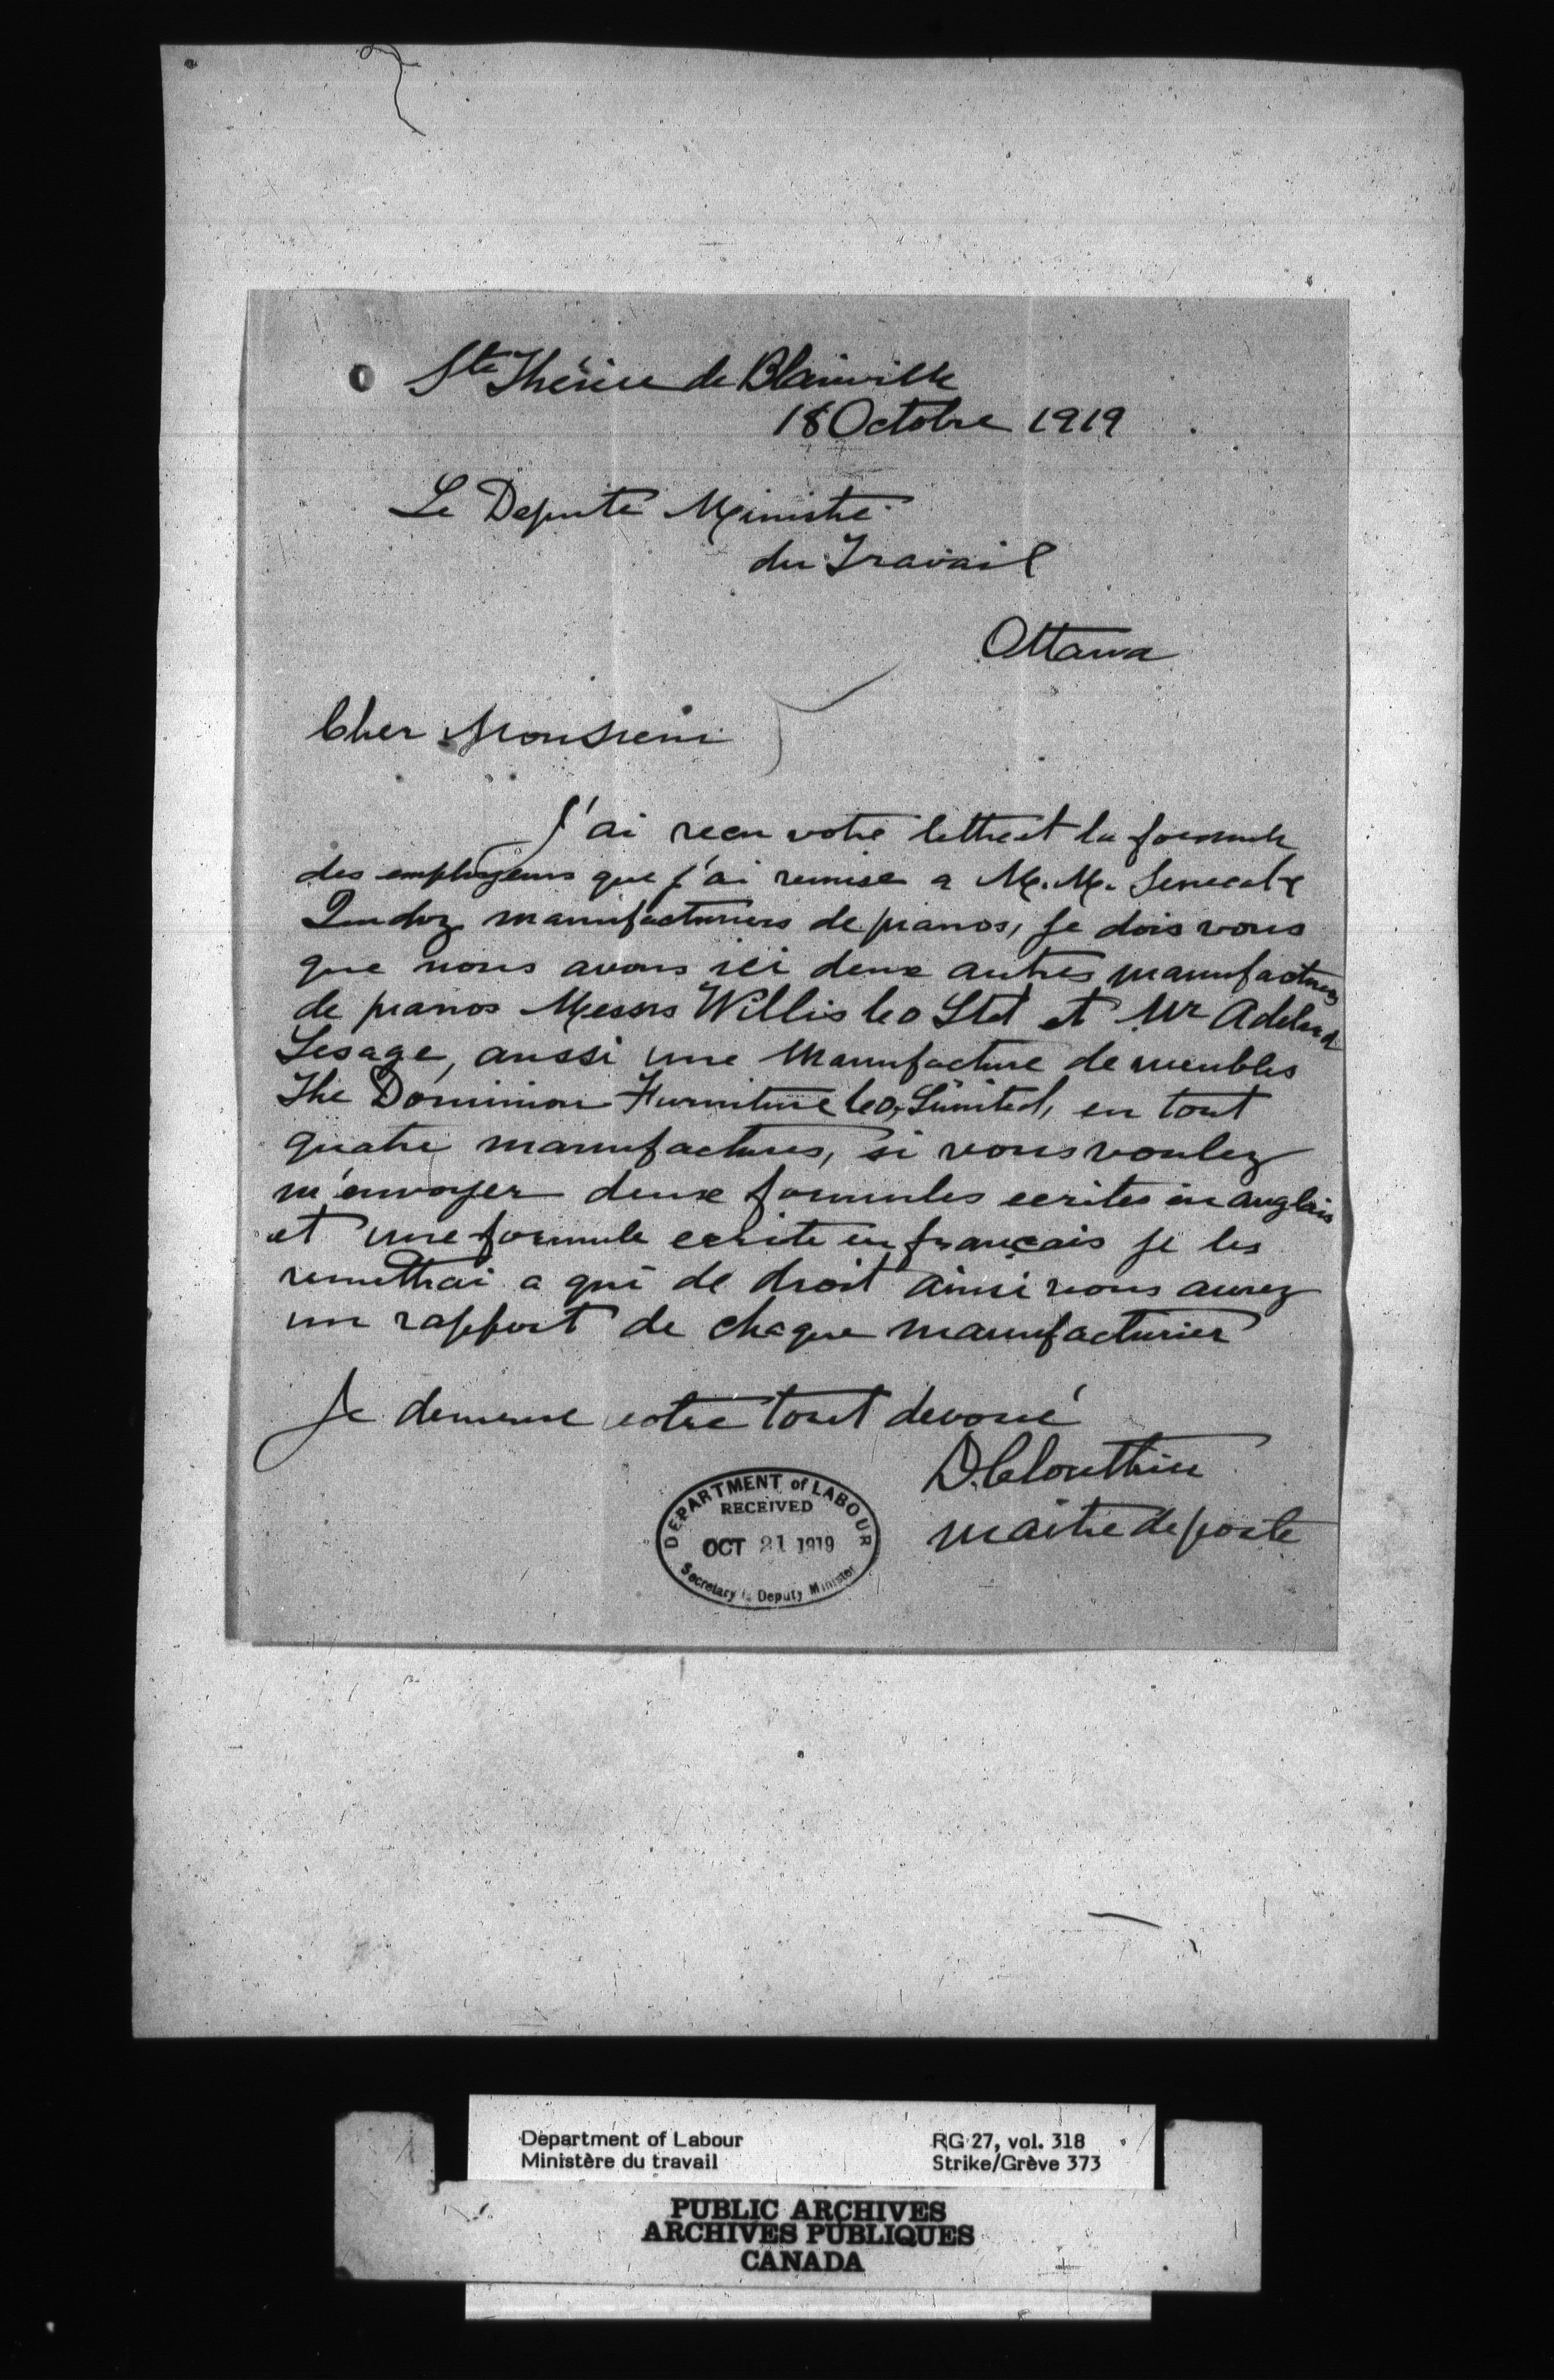 Ste Thérèse de Blainville
18 Octobre 1919
Le Deputé Ministre
du Travail
Ottawa
Cher Monsieur
J'ai recu votre lettre et la formule
des employeurs que j'ai remise a M.M. Senecal &
Quidoz manufacturiers de pianos, je dois vous
que nous avons ici deux autres manufactures
de pianos Messrs Willis Co Ltd et Mr Adelard
Lesage, aussi une Manufacture de meubles
The Dominion Furniture Co, Limited, en tout
quatre manufactures, si vous voulez
m'envoyer deux formules ecrites en anglais
et une formule ecrite en français je les
remettrai a qui de droit ainsi vous aurez
un rapport de chaque manufacturier
Je demeure votre tout devoué
D. Clouthier
maitre de poste
DEPARTMENT of LABOUR
RECEIVED
OCT 21 1919
Secretary to Deputy Minister
Department of Labour
Ministère du travail
RG 27, vol. 318
Strike/Grève 373
PUBLIC ARCHIVES
ARCHIVES PUBLIQUES
CANADA